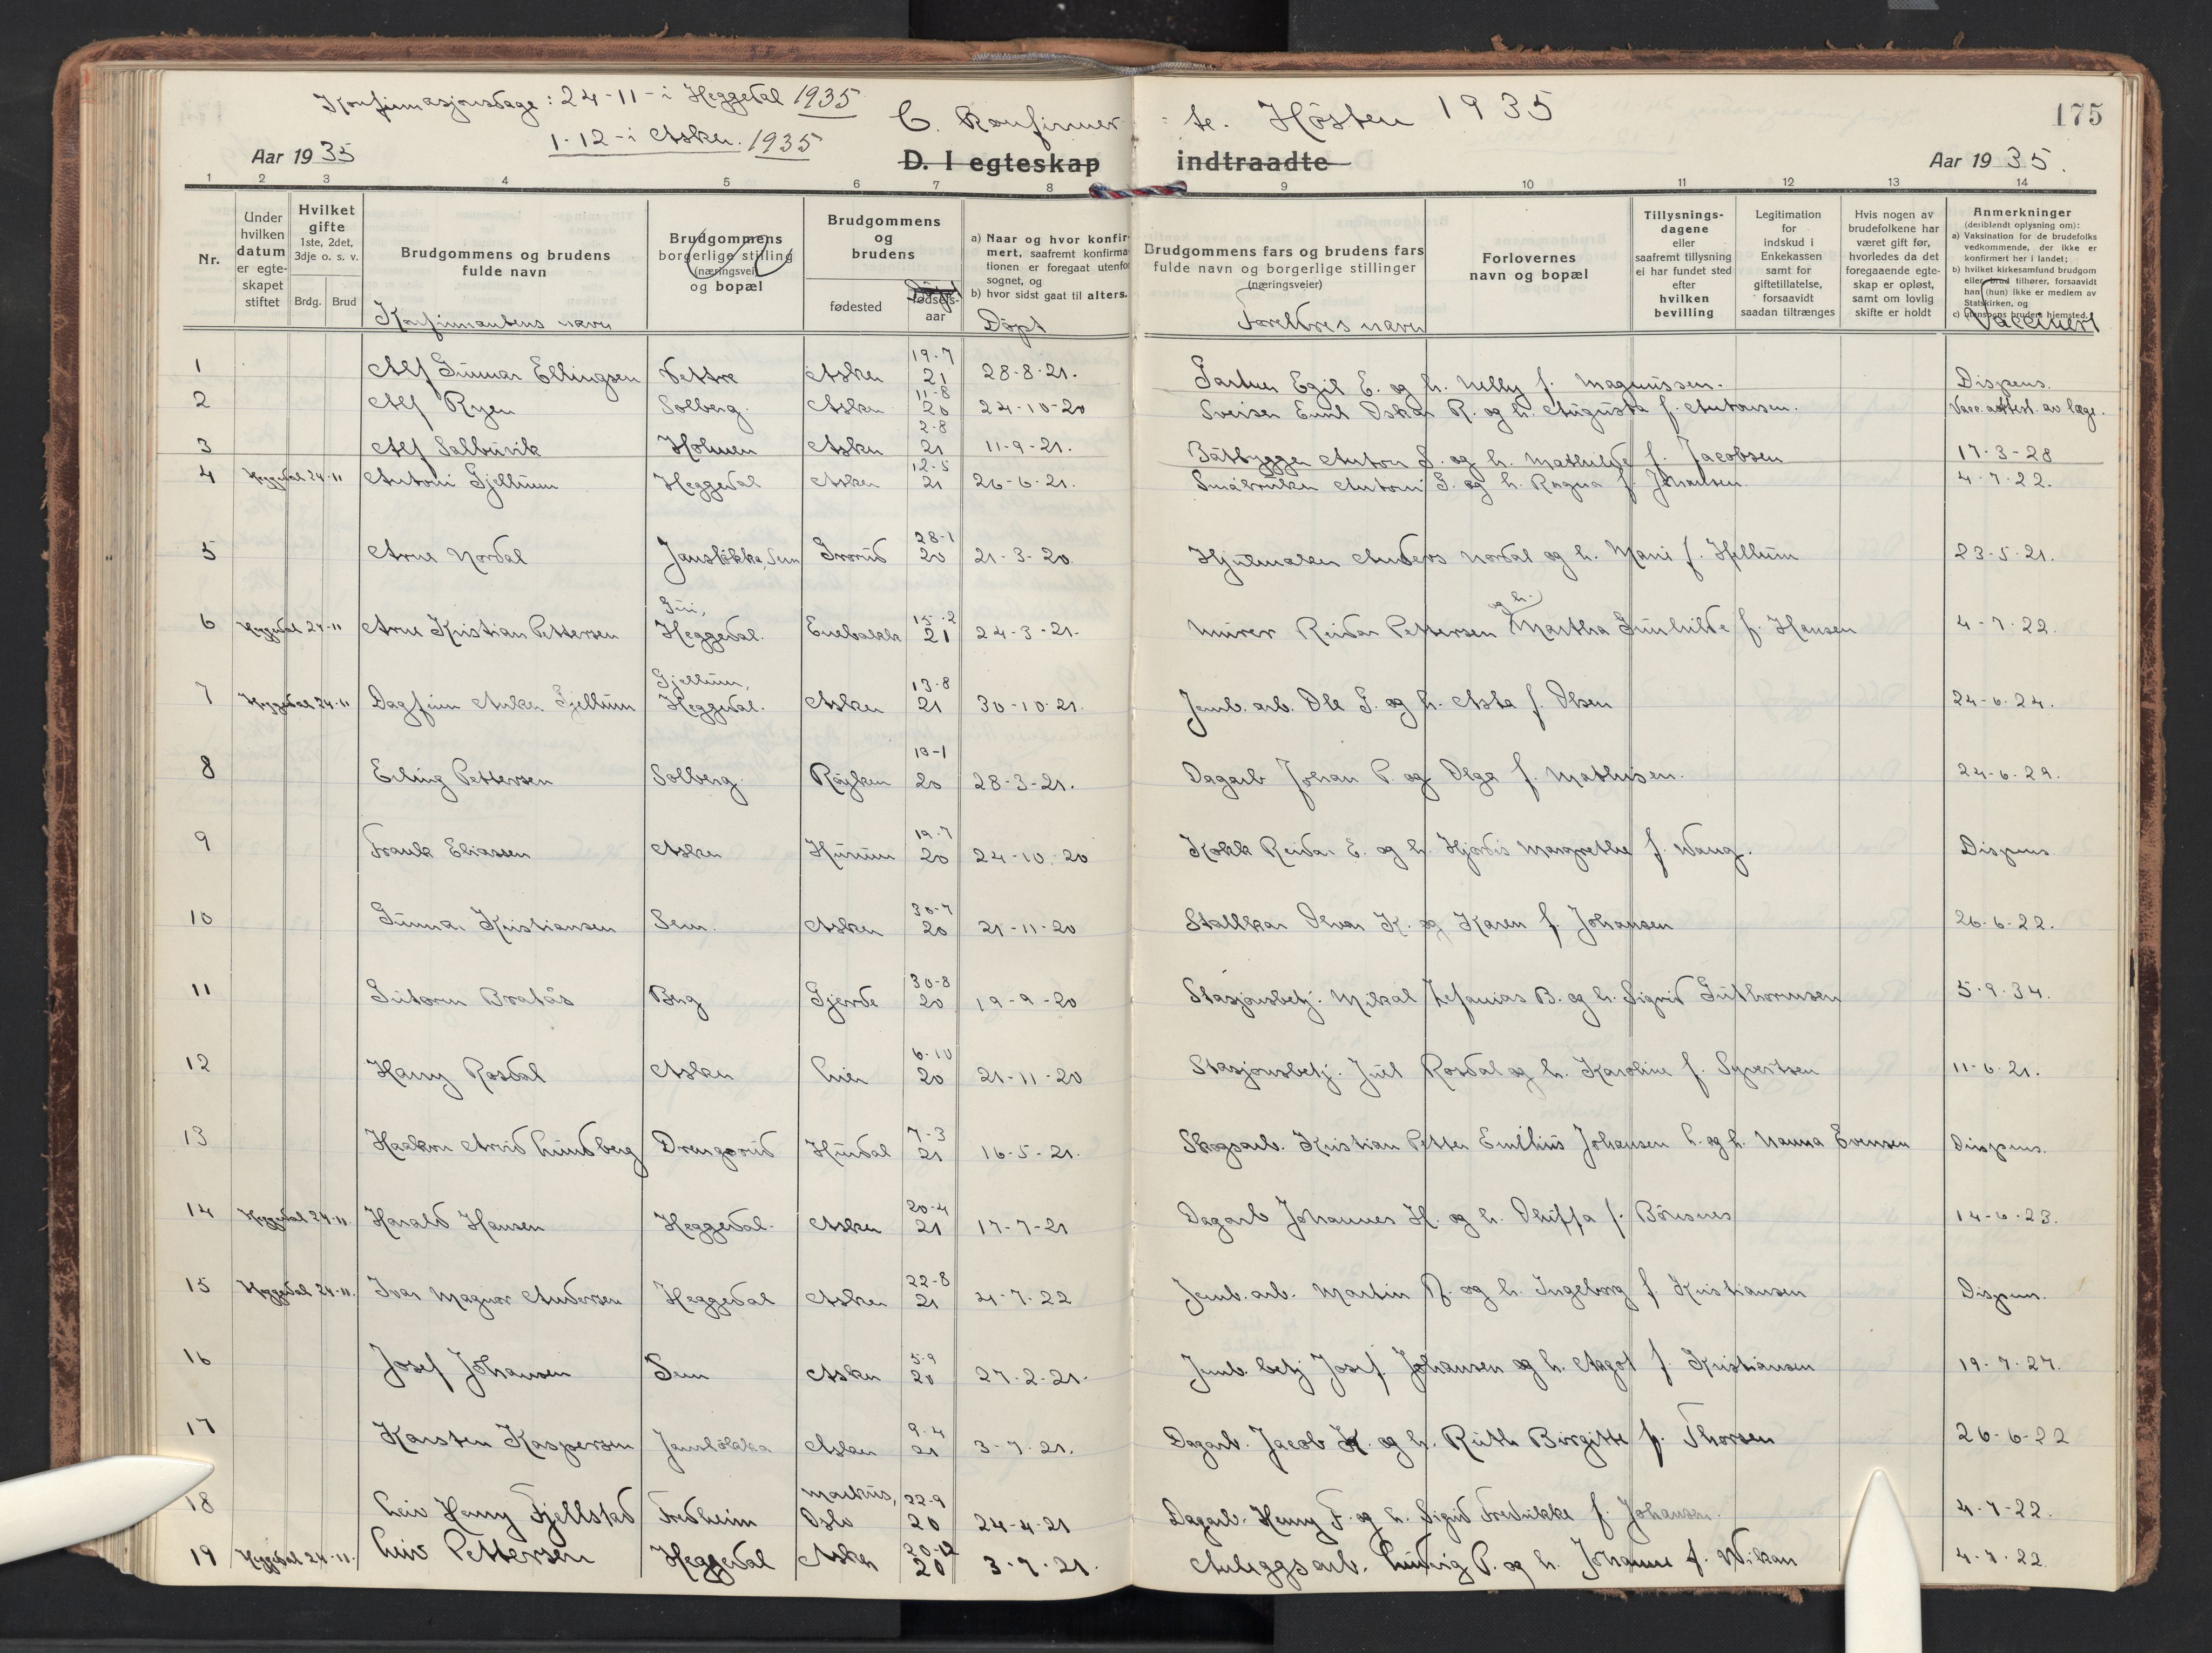 Konfirmasjonsdage: 24-11-i Heggedal 1935
1-12-i Asker. 1935
C. Konfirmerte. Hösten 1935
175
Aar 1935
D. I egteskap indtraadte
Aar 1935.
1 2 3 4 5 6 7 8 9 10 11 12 13 14
Nr.
Under hvilken datum er egteskapet stiftet
Hvilket gifte 1ste, 2det, 3dje o. s. v.
Brdg. Brud
Brudgommens og brudens fulde navn
Konfirmantens navn
Brudgommens borgerlige stilling (næringsvei) og bopæl
Brudgommens og brudens
fødested
fødselsaar
a) Naar og hvor konfirmert, saafremt konfirmationen er foregaat utenfor sognet, og
b) hvor sidst gaat til alters.
Döpt
Brudgommens fars og brudens fars fulde navn og borgerlige stillinger (næringsveier)
Foreldres navn
Forlovernes navn og bopæl
Tillysningsdagene eller saafremt tillysning ei har fundet sted efter hvilken bevilling
Legitimation for indskud i Enkekassen samt for giftetillatelse, forsaavidt saadan tiltrænges
Hvis nogen av brudefolkene har været gift før, hvorledes da det foregaaende egteskap er opløst, samt om lovlig skifte er holdt
Anmerkninger (deriblandt oplysning om):
a) Vaksination for de brudefolks vedkommende, der ikke er konfirmert her i landet;
b) hvilket kirkesamfund brudgom eller brud tilhører, forsaavidt han (hun) ikke er medlem av Statskirken, og
c) utensogns bruders hjemsted.
Vaccinert
1 Alf Gunnar Ellingsen Vettre Asker 19-7 21 28-8-21. Gartner Egil E. og h. Nelly f. Magnussen. Dispens.
2 Alf Ryen Solberg. Asker 11-8 20 24-10-20 Sveiser Emil Oskar R. og h. Augusta f. Antonsen. Vacc. attest. av læge.
3 Alf Salbuvik Holmen Asker 2-8 21 11-9-21. Båtbygger Anton S. og h. Mathilde f. Jacobsen 17-3-28
4 Heggedal 24-11 Antoni Gjellum Heggedal Asker 12-5 21 26-6-21. Småbruker Antoni G. og h. Ragna f. 4-7-22.
5 Arne Nordal Jansløkka, Sem Grorud 28-1 20 21-3-20 Hjulmaker Anders Nordal og h. Marie f. Hellum 23-5-21.
6 Heggedal 24-11 Arne Kristian Pettersen Gui, Heggedal. Enebakk 15-2 21 24-3-21. Murer Reidar Pettersen og h. Martha Gunhilde f. Hansen 4-7-22.
7 Heggedal 24-11 Dagfinn Anker Gjellum Gjellum, Heggedal. Asker 13-8 21 30-10-21. Jernb. arb. Ole G. og h. Asta f. Olsen 24-6-24.
8 Erling Pettersen Solberg. Röyken 13-1 20 28-3-21. Dagarb Johan P. og Olga f. Mathisen. 24-6-29.
9 Frank Eliassen Asker Hurum 19-7 20 24-10-20 Kokk Reidar E. og h. Hjördis Margrethe f. Wang. Dispens
10 Gunnar Kristiansen Sem. Asker 30-7 20 21-11-20 Stallkar Olvar K. og Karen f. Johansen 26-6-22.
11 Gutorm Bratås Berg Gjerde 30-8 20 19-9-20 Stasjonsbetj. Mikal Zefanias B. og h. Sigrid Guthormsen 5-9-34.
12 Harry Rosdal Asker Lier 6-10 20 21-11-20 Stasjonsbetj. Juel Rosdal og h. Karoline f. Syvertsen 11-6-21.
13 Haakon Arvid Lundberg Drengsrud Hurdal 7-3 21 16-5-21. Skogsarb. Kristian Petter Emilius Johansen L. og h. Nanna Evensen Dispens.
14 Heggedal 24-11. Harald Hansen Heggedal. Asker 20-4 21 17-7-21 Dagarb Johannes H. og h. f. 14-6-23.
15 Heggedal 24-11. Ivar Magnor Andersen Heggedal Asker 22-8 21 4-7-22 Jernb. arb. Martin A. og h. Ingeborg f. Kristiansen Dispens.
16 Josef Johansen Sem Asker 5-9 20 27-2-21. Jernb. betj Josef Johansen og h. Aagot f. Kristiansen 19-7-27.
17 Karsten Kaspersen Jansløkka Asker 9-4 21 3-7-21. Dagarb. Jacob K. og h. Ruth Birgitte f. Thorsen 26-6-22
18 Leiv Henry Fjellstad Fredheim Markus, Oslo 22-9 20 24-4-21 Dagarb. Henry F. og h. Sigrid Fredrikke f. Johansen. 4-7-22.
19 Heggedal 24-11. Leiv Pettersen Heggedal Asker 20-12 20 3-7-21. Anleggsarb. Ludvig P. og h. Johanne f. Wikan 4-7-22